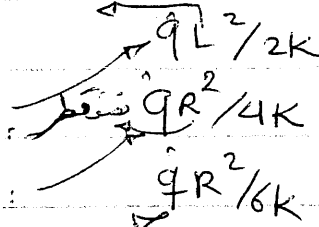 q̂L²/2K
q̂R²/4K
q̂R²/6K